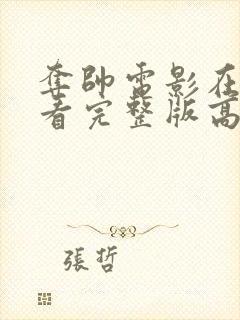 奪帥電影在
看完整版高
張哲